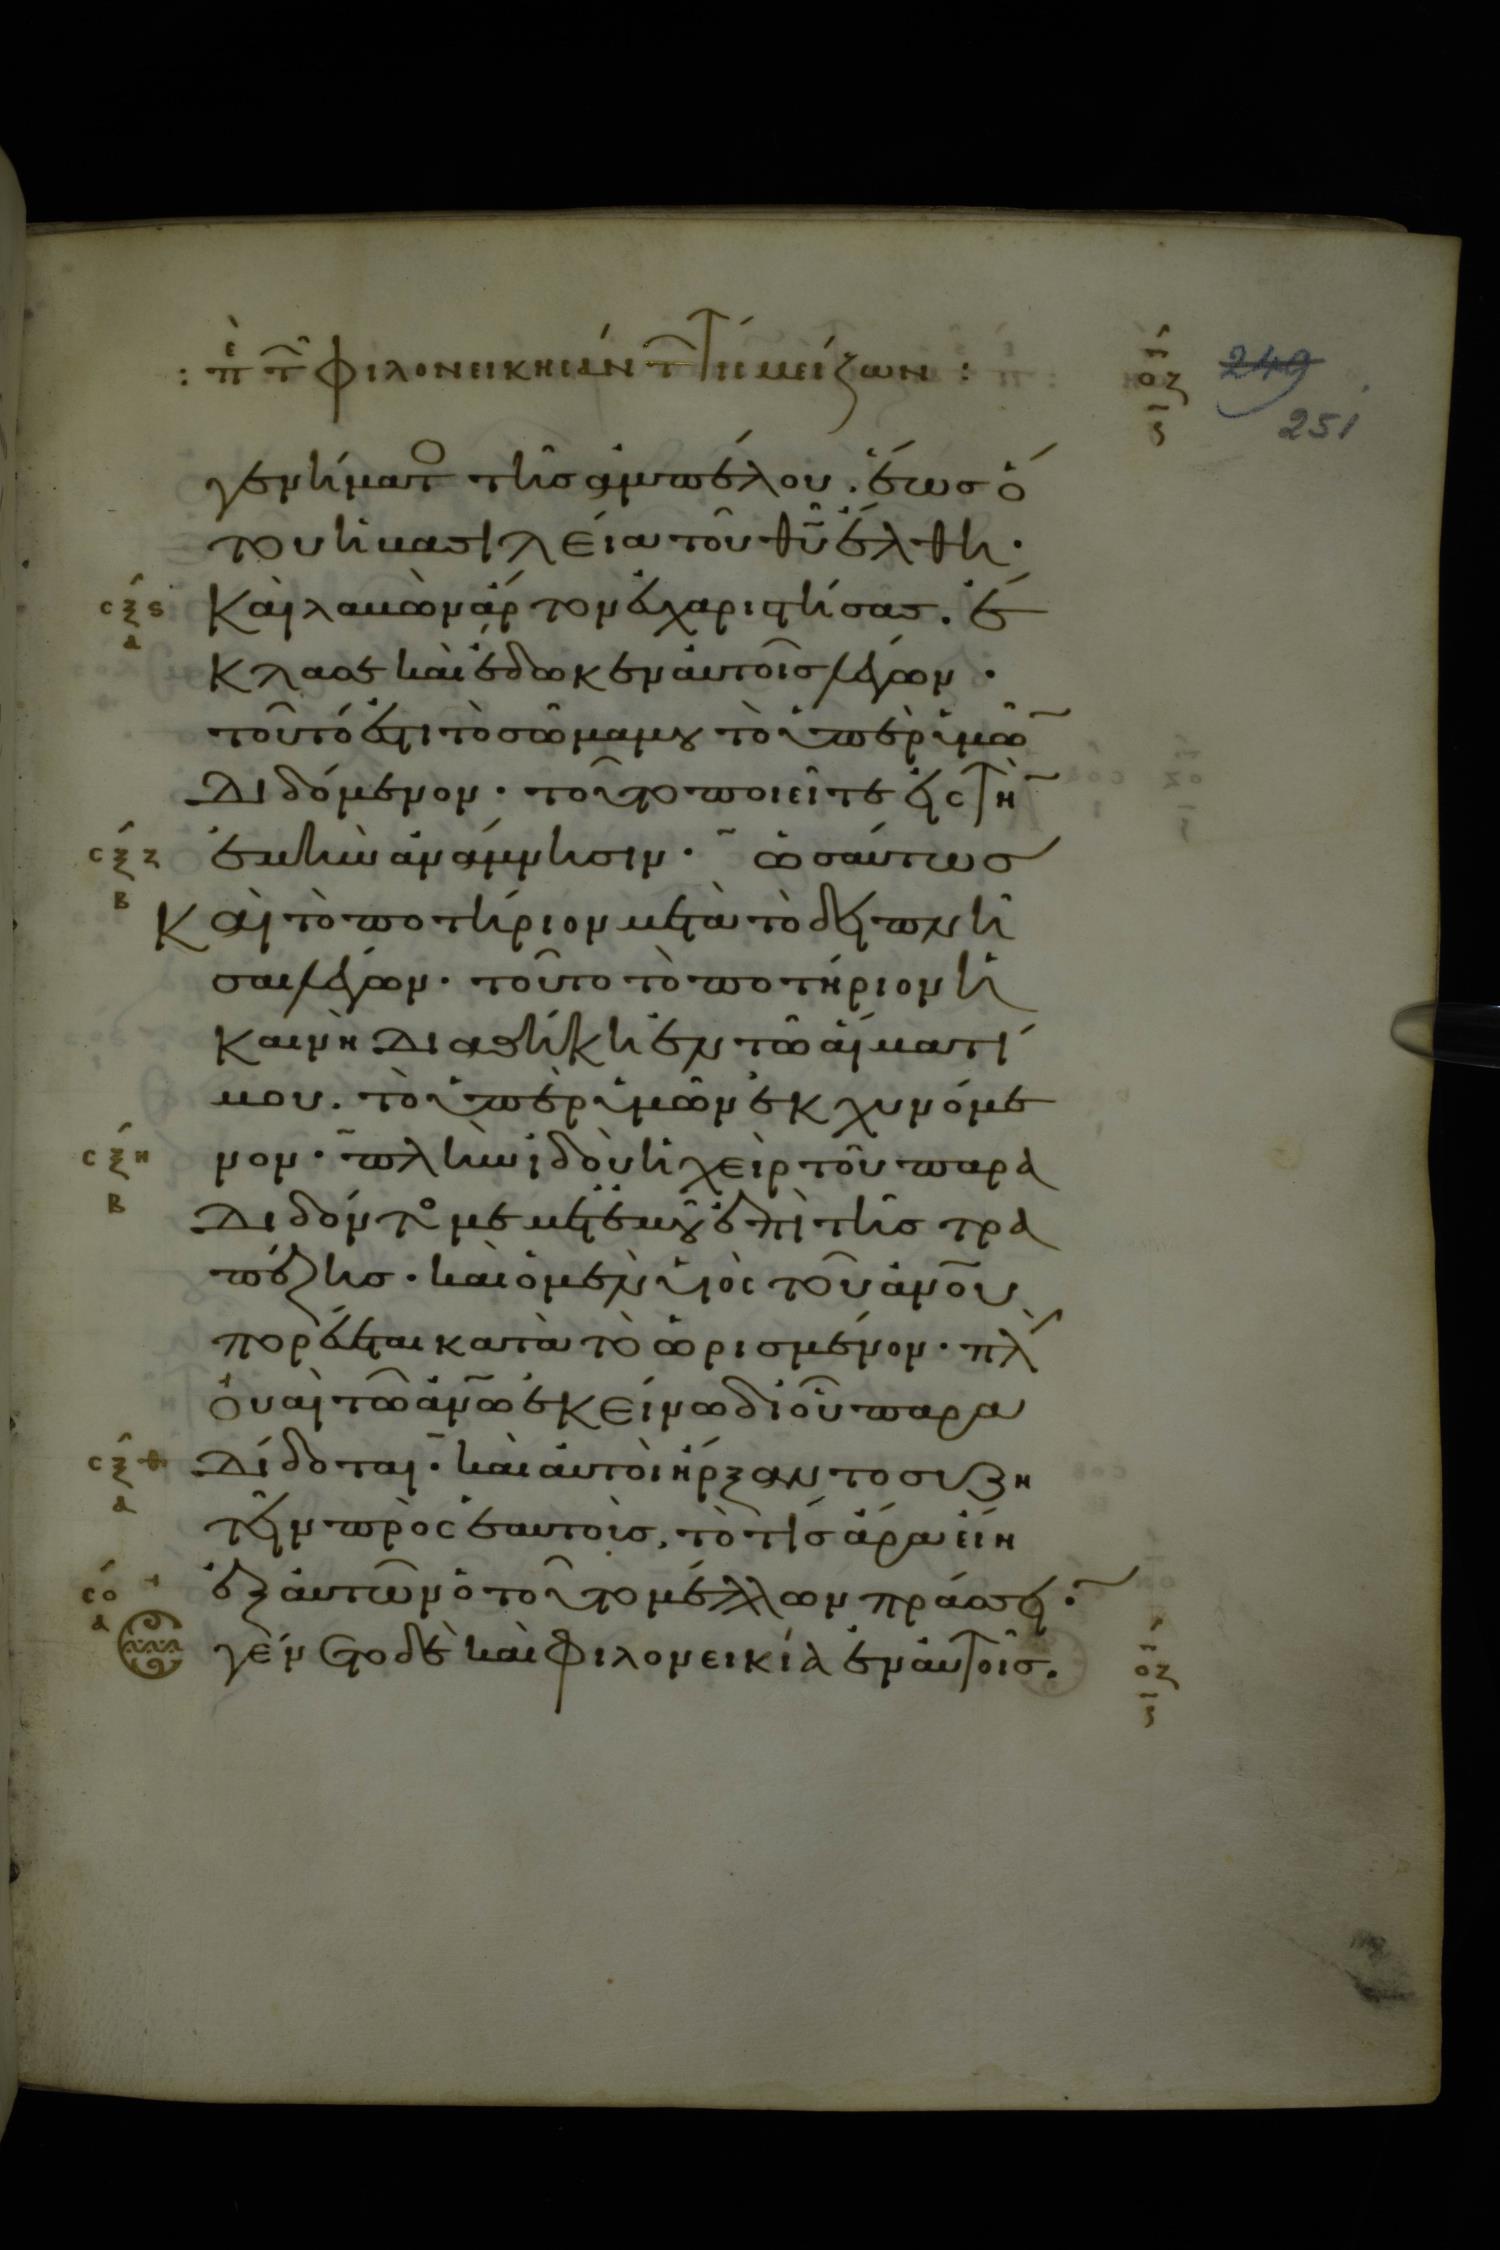 : πε τ̑ φιλονεικησάντ̑ τίς μείζων :
ο̑ζ
ς̄
249
251
γεννήματο τῆς ἀμπέλου. ἕως ὅ
του ἡ βασιλεία τοῦ θῦ ἔλθη ·
σξς
α
Καὶ λαβὼν ἄρτον εὐχαριστήσας. ἔ
κλασε καὶ ἔδωκεν αὐτοῖς λέγων ·
τοῦτό ἐστι τὸ σῶμα μου τὸ ὑπὲρ ὑμῶ
διδόμενον · τοῦτο ποιεῖτε εἰς τὴν
σξζ
β
ἐμὴν ἀνάμνησιν · ὡσαύτως
Καὶ τὸ ποτήριον μετὰ τὸ δειπνῆ
σαι λέγων · τοῦτο τὸ ποτήριον ἡ
καινὴ διαθήκη ἐν τῶ αἵματί
μου. τὸ ὑπὲρ ὑμῶν ἐκχυνόμε
σξη
β
νον · πλὴν ἰδοὺ ἡ χεὶρ τοῦ παρα
διδόντος με μετ ἐμοῦ ἐπὶ τῆς τρα
πέζης · καὶ ὁ μὲν υἱὸς τοῦ ἀνου
πορεύεται κατὰ τὸ ὡρισμένον · πλὴ
οὐαὶ τῶ ἀνω ἐκείνω δι οὗ παρα
σξθ
α
δίδοται · καὶ αὐτοὶ ἤρξαντο συζη
τεῖν πρὸς ἑαυτοὺς, τὸ τίς ἄρα εἴη
σο
α
ἐξ αὐτῶν ὁ τοῦτο μέλλων πράσσειν ·
γένετο δὲ καὶ φιλονεικία ἐν αὐτοῖς.
ο̑ζ
ς̄